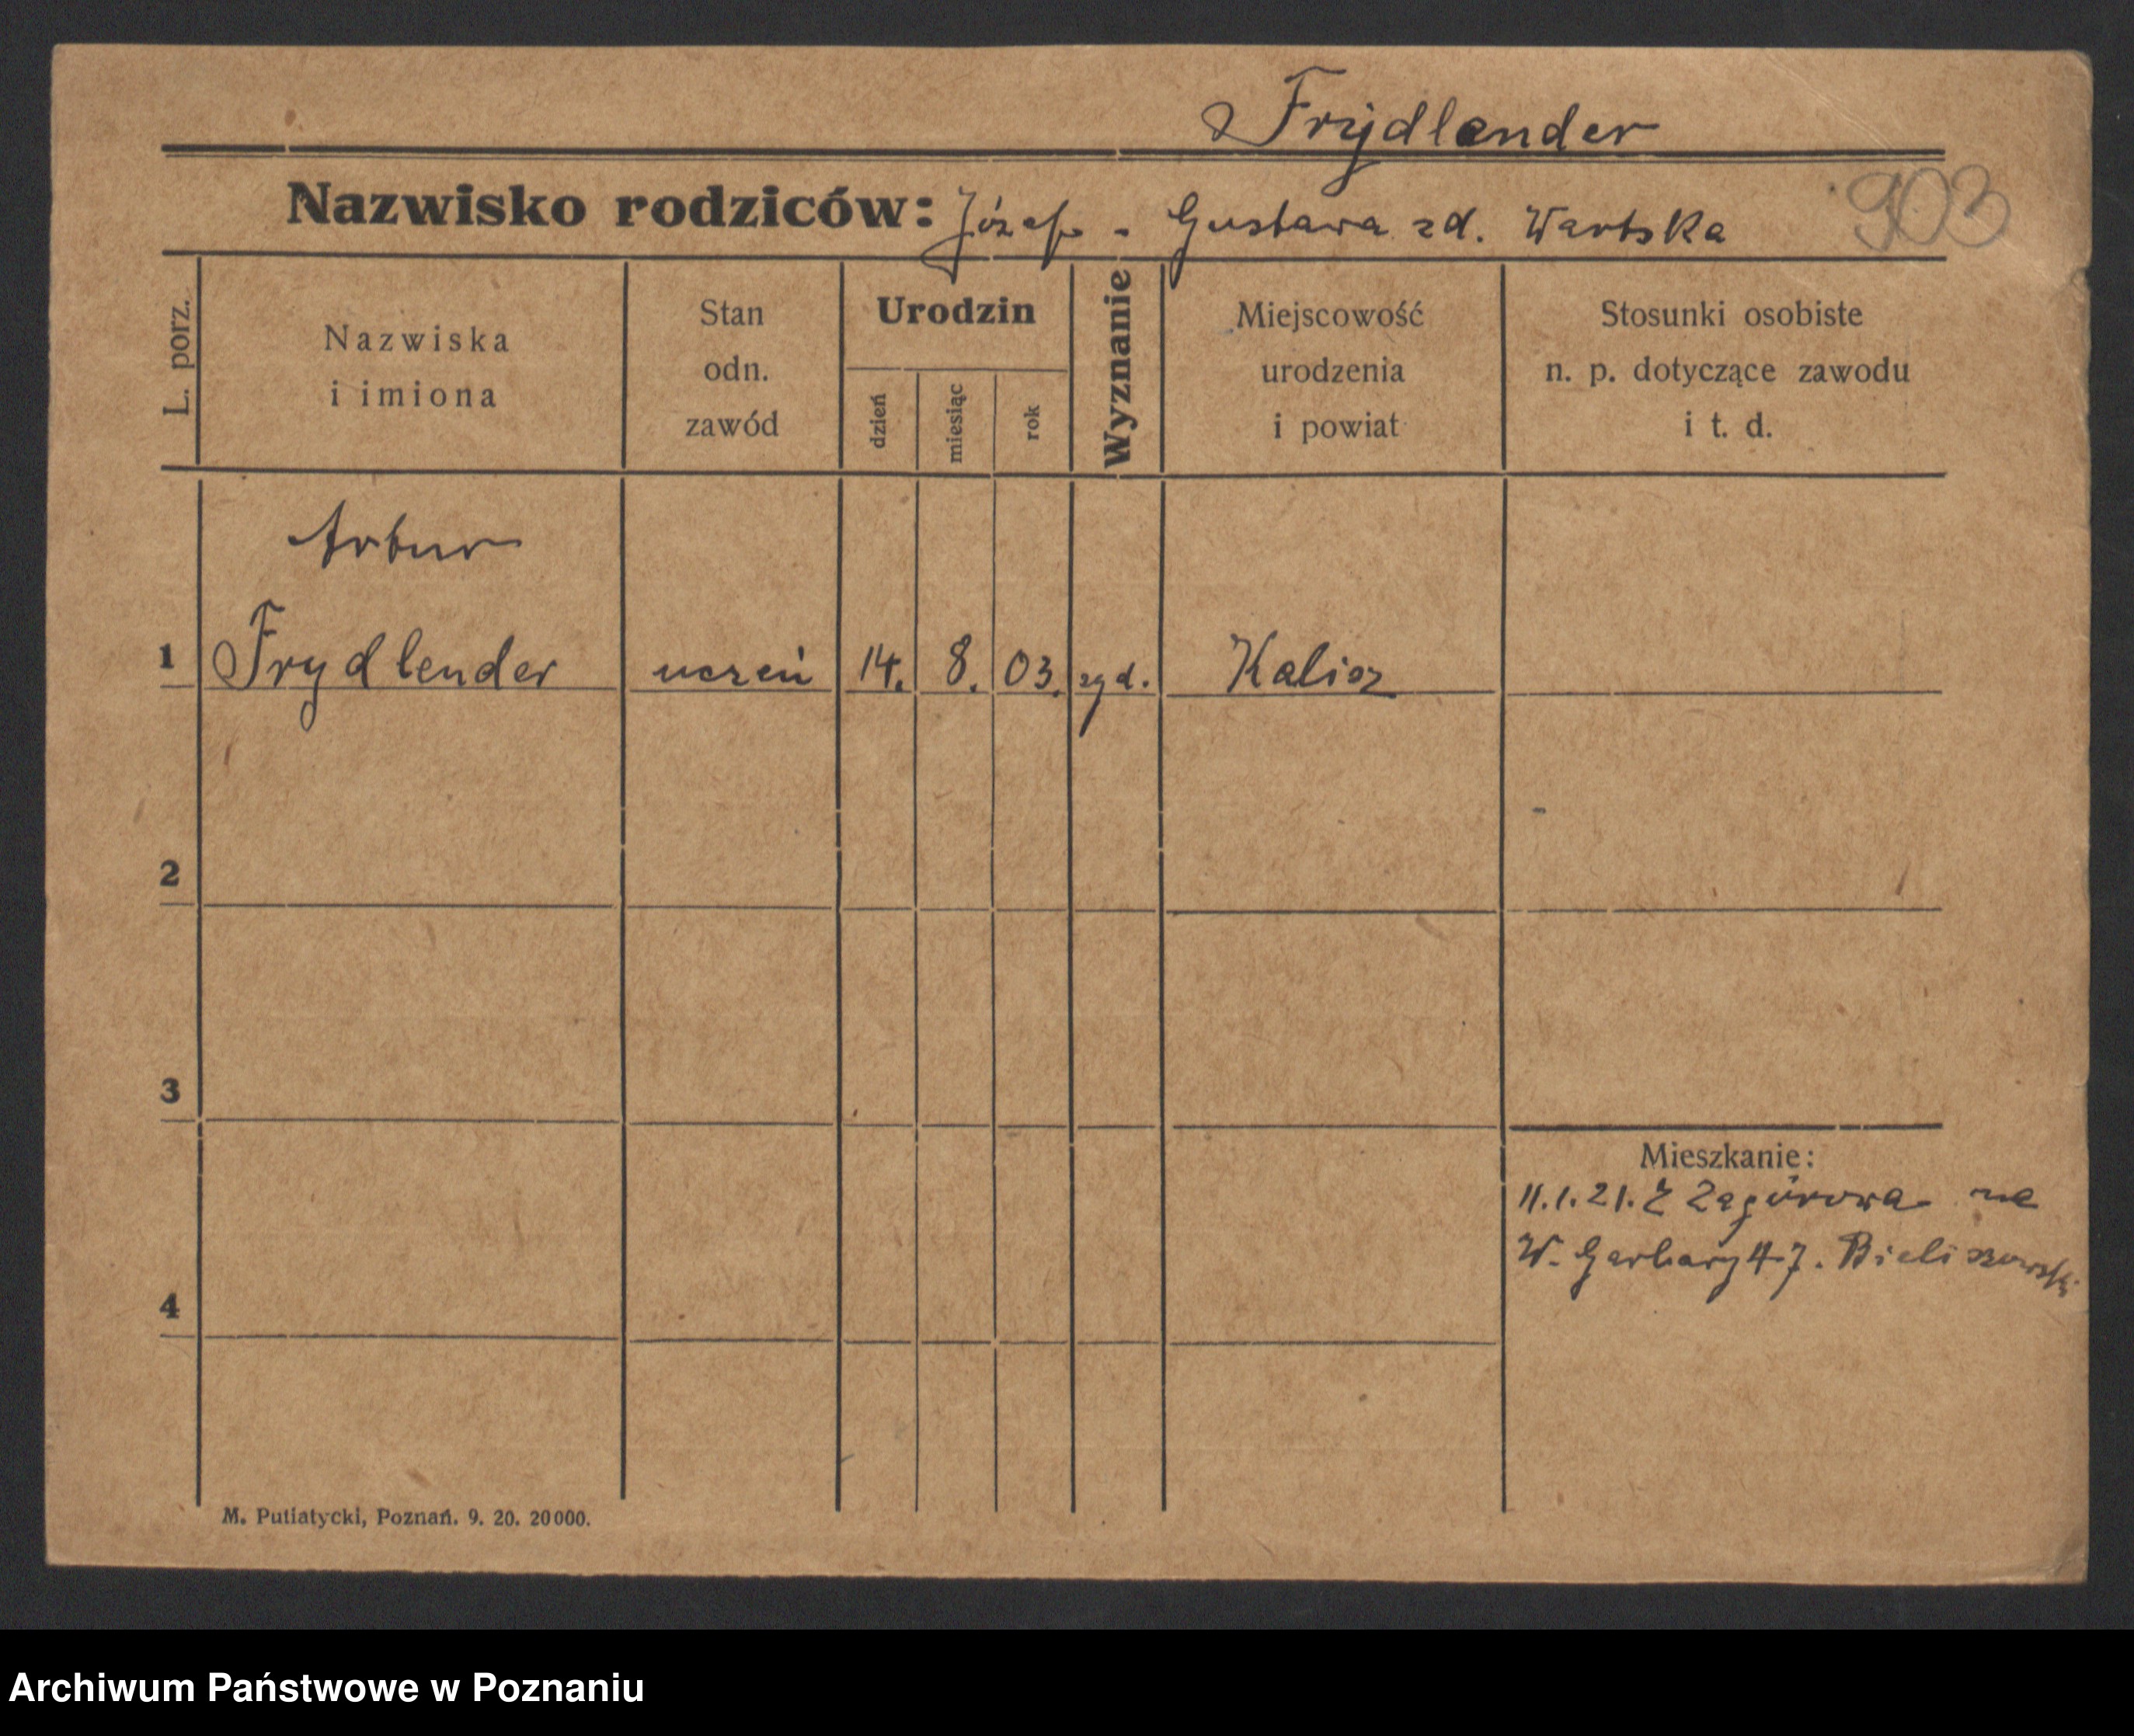 Frydlender
Nazwisko rodziców: Józef - Gustawa zd. Wartska 903
L. porz.
Nazwiska
i imiona
Stan
odn.
zawód
Urodzin
dzień
miesiąc
rok
Wyznanie
Miejscowość
urodzenia
i powiat
Stosunki osobiste
n. p. dotyczące zawodu
i t. d.
Artur
1 Frydlender uczeń 14. 8. 03. żyd. Kalisz
2
3
Mieszkanie:
11.1.21. Z Zagórowa na
W. Garbary 47. Bieliszowski
4
M. Putiatycki, Poznań. 9. 20. 20000.
Archiwum Państwowe w Poznaniu